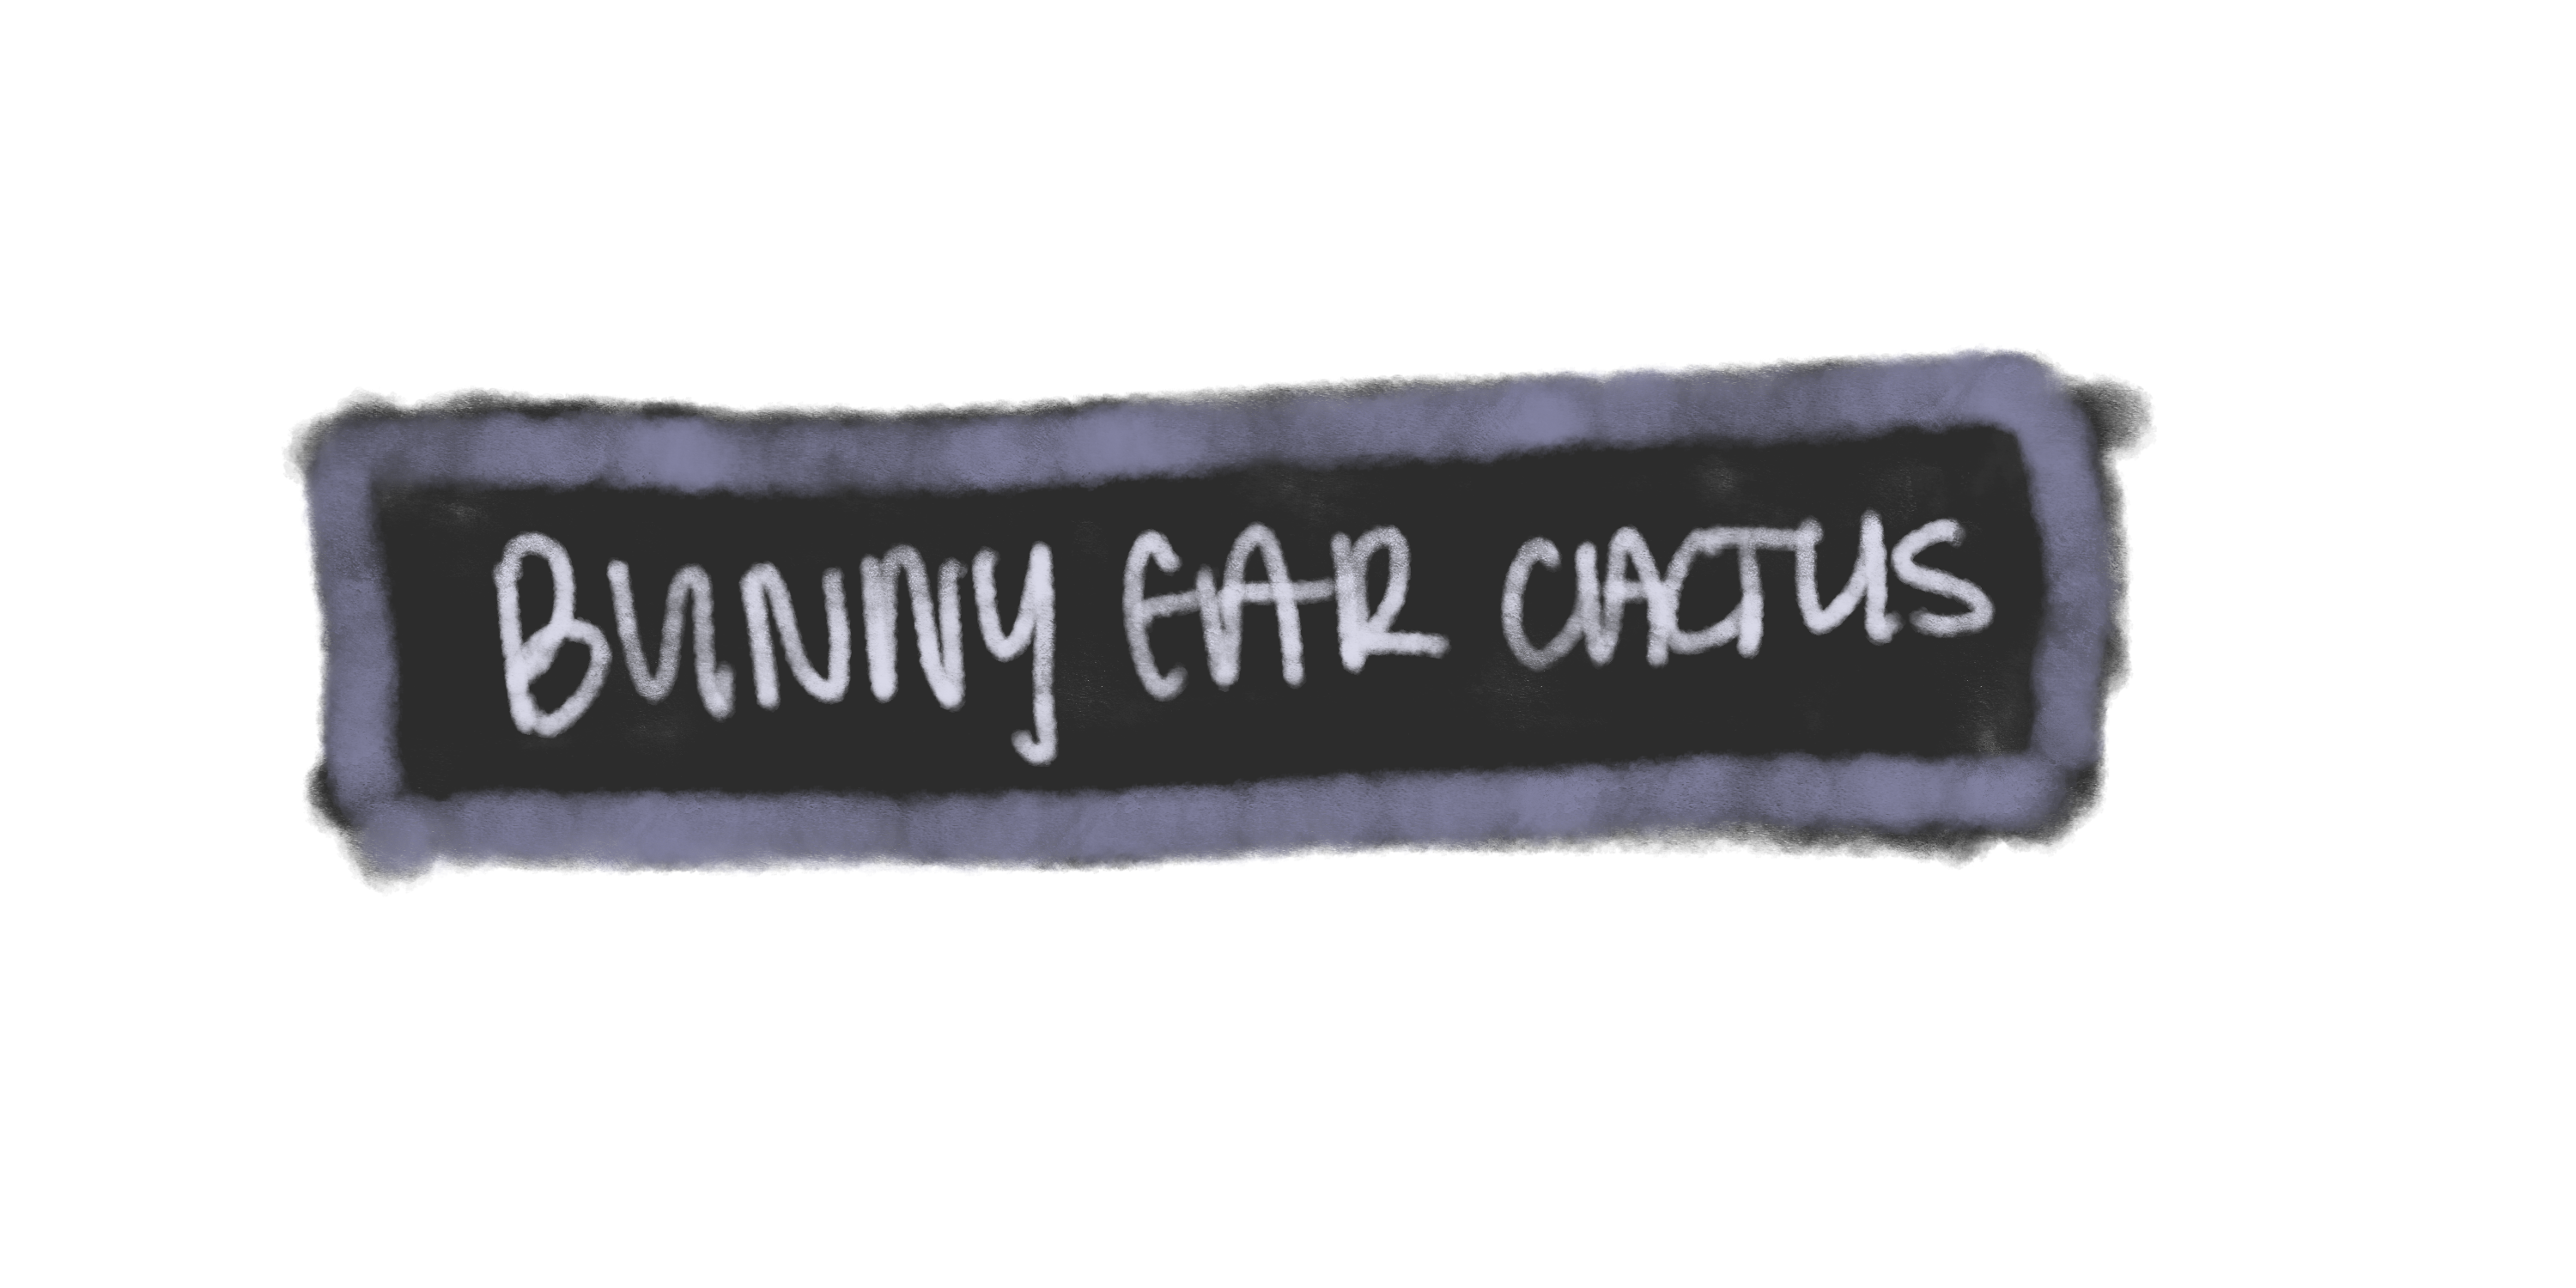 BUNNY EAR CACTUS